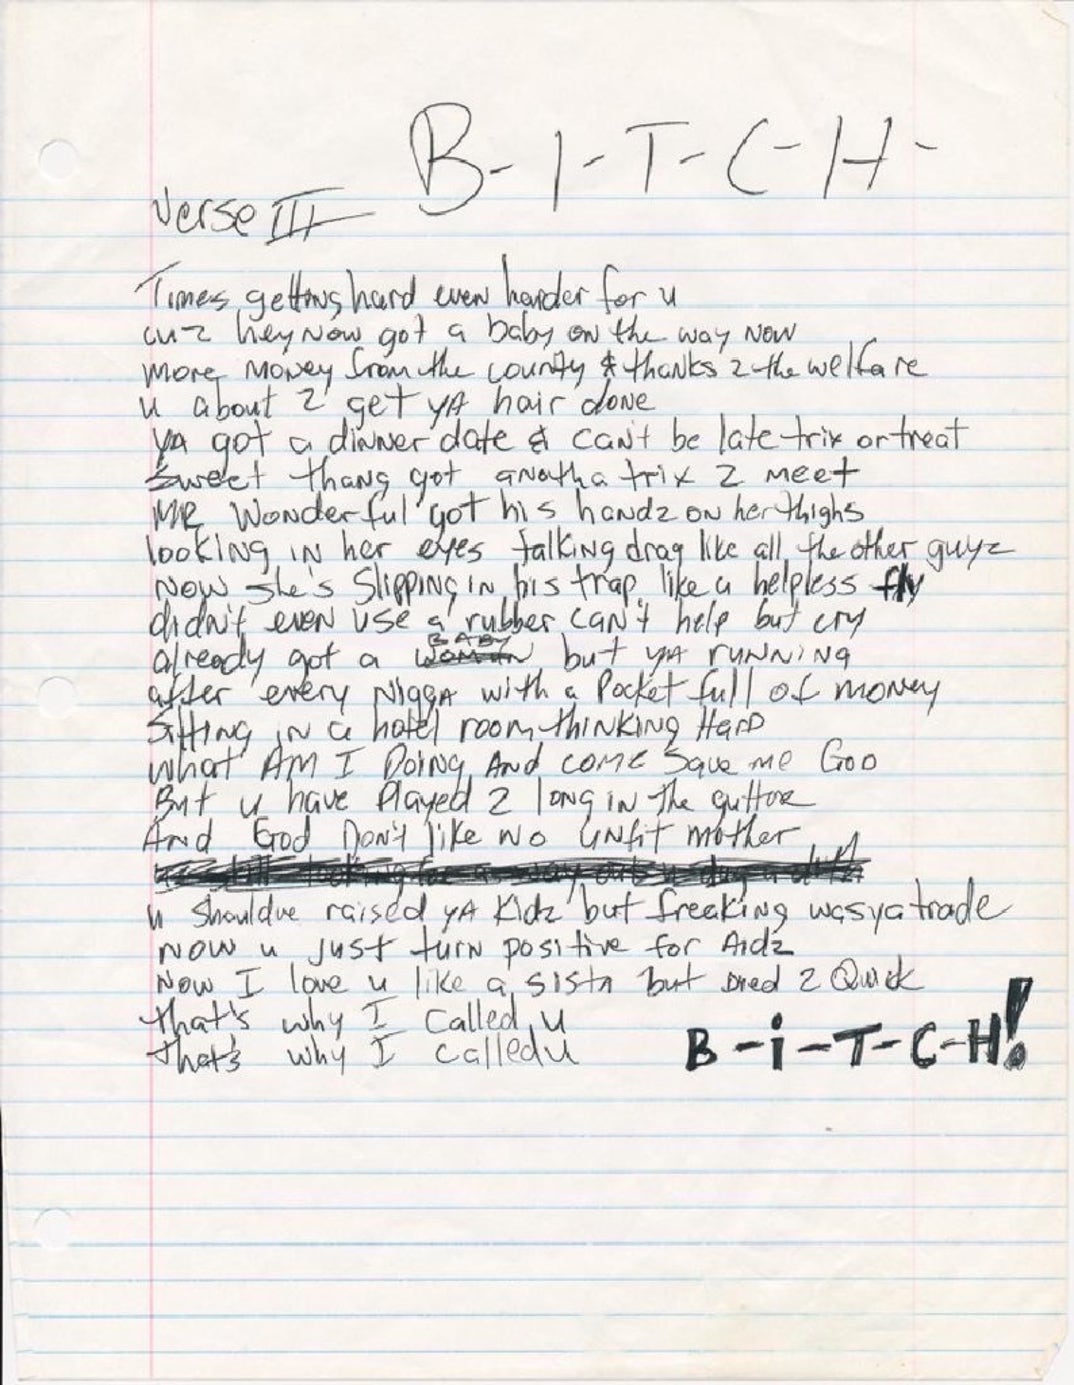 B-I-T-C-H-
Verse III
Times getting hard even harder for u
cuz hey now got a baby on the way now
more money from the county & thanks 2 the welfare
u about 2 get yA hair done
ya got a dinner date & can't be late trix or treat
sweet thang got anotha trix 2 meet
MR Wonderful got his handz on her thighs
looking in her eyes talking drag like all the other guyz
now she's Slipping in his trap like a helpless fly
didn't even use a rubber can't help but cry
BABY
already got a woman but yA running
after every NiggA with a Pocket full of money
sitting in a hotel room thinking Hard
what AM I Doing And come save me God
But u have Played 2 long in the guttor
And God Don't like no unfit mother
u shouldve raised yA Kidz but freaking was ya trade
now u just turn positive for Aidz
Now I love u like a sista but Died 2 Quick
that's why I called u
that's why I called u B-i-T-C-H!